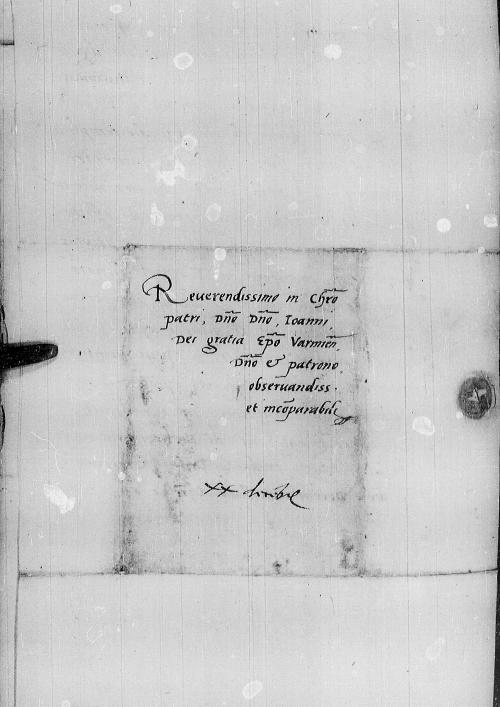 Reuerendissimo in Chr̃o
patri, Dño Dño, Ioanni,
Dei gratia Ep̃o Varmien̄.
Dño & patrono
obseruandiss.
et incōparabili
xx